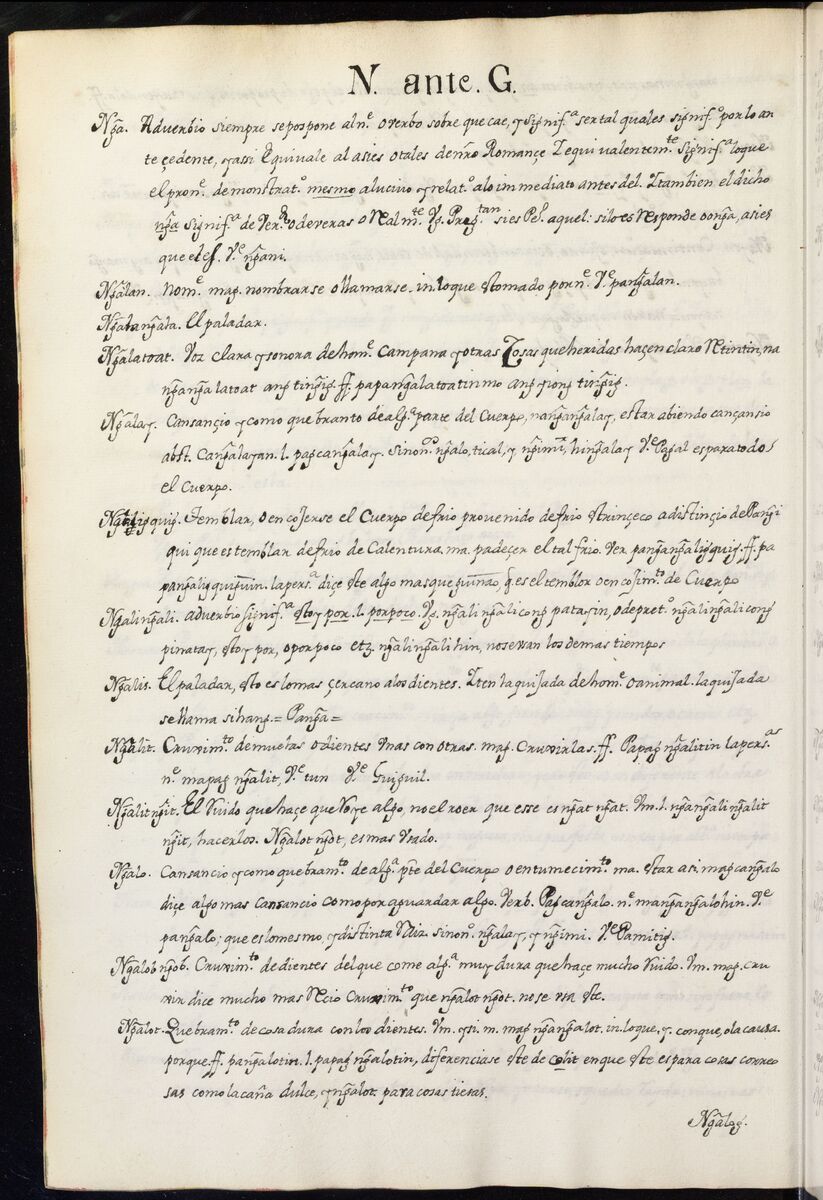 N. ante. G.
Ng̃a. Adverbio siempre sepospone aln.e overbo sobre que cae, y signif.a ser tal quales signif.o por lo an
te çedente, y assi Equivale al asies otales de nr̃o Romançe Iequivalentem.te signif.a loque
el pron.e demonstrat.o mesmo alucivo y relat.o alo inmediato antes del. Itambien el dicho
ng̃a signif.a de Ver.d odeveras o Realm.te Vg. Preg.tan sies Pe.o aquel: siloes Responde oong̃a, asies
que elef. V.e ng̃ani.
Ng̃alan. Nom.e mag. nombrarse o llamarse. in. loque stomado porn.e V.e pang̃alan.
Ng̃alang̃ala. El paladar.
Ng̃alatoat. Voz clara y sonora de hom.e Campana y otras Cosas que heridas haçen claro Retintin, na
ng̃ang̃alatoat ang ting̃ig. ff. papang̃alatoatin mo ang iyong ting̃ig.
Ng̃alay. Cansançio y como quebranto de alg.a parte del Cuerpo, nang̃ang̃alay, estar abiendo cançansio
abst. Cang̃alayan. l. pagcang̃alay. sinon.o ng̃alo, tical, y ng̃imi, hing̃alay V.e Pagal es para todo
el Cuerpo.
Ng̃aligquig. Temblar, o encojerse el Cuerpo defrio provenido defrio strinçeco a distinçio de Pang̃i
qui que es temblar defrio de Calentura. ma. padeçer el tal frio. Ver pang̃ang̃aligquig. ff. pa
pang̃aligquiguin. la pers.a diçe ste algo mas que guinao, q. es el temblor o encojim.to de Cuerpo
Ng̃aling̃ali. adverbio signif.a stoy por. l. porpoco. Vg. ng̃aling̃alicong patayin, o de pret.o ng̃aling̃alicong
pinatay, stoy por, o porpoco etz. ng̃aling̃alihin, nose usan los demas tiempos
Ng̃alis. El paladar, sto es lo mas çercano a los dientes. Iten la quijada de hom.e o animal. la quijada
se llama sihang = Pang̃a =
Ng̃alit. Cruxim.to de muelas o dientes Unas con otras. mag. Cruxirlas. ff. Papagng̃alitin la pers.as
n.e mapagng̃alit, V.e tun V.e Guiguil.
Ng̃alitng̃it. El Ruido que haçe que Roye algo, no el roer que esse es ng̃atng̃at. Vm. l. ng̃ang̃aling̃alit
ng̃it, hacerlos. Ng̃alotng̃ot, es mas Usado.
Ng̃alo. Cansancio y como quebram.to de alg.a pte del Cuerpo o entumecim.to ma. star asi. magcang̃alo
diçe algo mas cansancio como por aguardar algo. Verb. Pagcang̃alo. n.e mang̃ang̃alohin. V.e
pang̃alo; que es lo mesmo, y distinta Raiz. sinon.o ng̃alay, y ng̃imi. V.e Pamitig.
Ng̃alobng̃ob. Cruxim.to de dientes del que come alg.a muy dura que haçe mucho Ruido. Vm. mag. cru
xir dice mucho mas Recio Cruxim.to que ng̃alotng̃ot. no se usa ste.
Ng̃alot. Quebram.to de cosa dura con los dientes. Vm. y si. m. magng̃ang̃alot. in. loque, y. conque, o la causa.
porque ff. pang̃alotin. l. papagng̃alotin, diferenciase ste de colit en que ste es para cosas correo
sas como la caña dulce, y ng̃alot para cosas tiesas.
Ng̃alog.